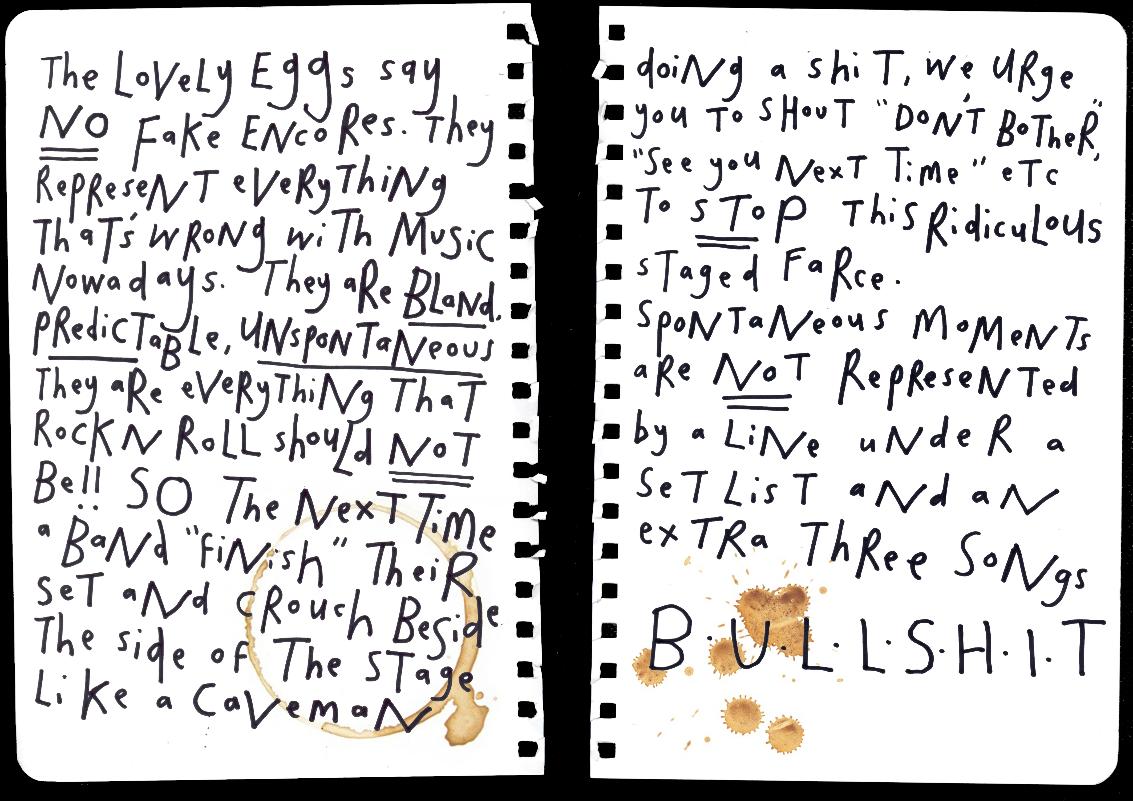 The Lovely Eggs say
NO Fake Encores. They
Represent everything
that's wrong with Music
Nowadays. They are Bland,
predictable, unspontaneous
They are everything that
Rock N Roll should NOT
Be!! SO The Next Time
a Band "finish" Their
set and crouch Beside
The side of The stage
Like a caveman
doing a shit, we urge
you to shout "Don't Bother",
"See you Next Time" etc
To STOP This Ridiculous
staged Farce.
Spontaneous Moments
are NOT Represented
by a Line under a
Set List and an
extra Three Songs
B.U.L.L.S.H.I.T